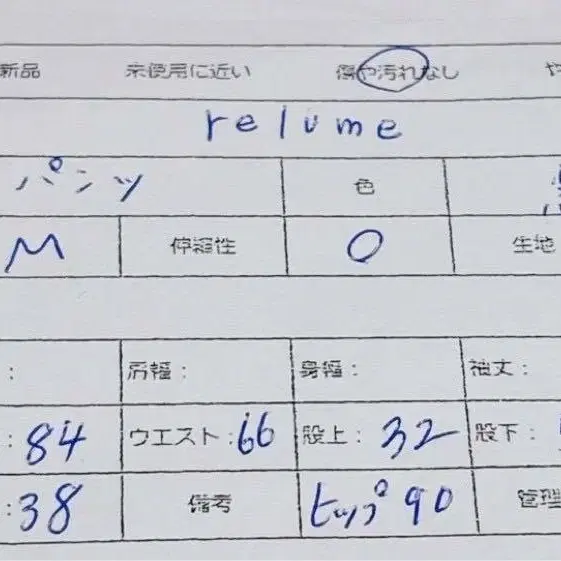 新品 未使用に近い 傷や汚れなし や
relume
パンツ 色
M 伸縮性 O 生地
: 肩幅: 身幅: 袖丈:
:84 ウエスト:66 股上:32 股下:
:38 備考 ヒップ90 管理